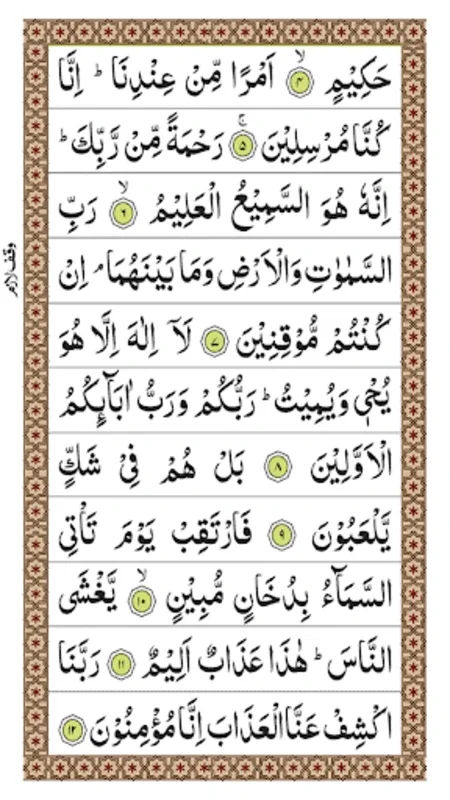 حَكِيْمٍ ۙ﴿۴﴾ اَمْرًا مِّنْ عِنْدِنَا ؕ اِنَّا
كُنَّا مُرْسِلِيْنَ ۚ﴿۵﴾ رَحْمَةً مِّنْ رَّبِّكَ ؕ
اِنَّهٗ هُوَ السَّمِيْعُ الْعَلِيْمُ ۙ﴿۶﴾ رَبِّ
السَّمٰوٰتِ وَالْاَرْضِ وَمَا بَيْنَهُمَا ۘ اِنْ
كُنْتُمْ مُّوْقِنِيْنَ ﴿۷﴾ لَاۤ اِلٰهَ اِلَّا هُوَ
يُحْيٖ وَيُمِيْتُ ؕ رَبُّكُمْ وَرَبُّ اٰبَآئِكُمُ
الْاَوَّلِيْنَ ﴿۸﴾ بَلْ هُمْ فِيْ شَكٍّ
يَّلْعَبُوْنَ ﴿۹﴾ فَارْتَقِبْ يَوْمَ تَاْتِي
السَّمَآءُ بِدُخَانٍ مُّبِيْنٍ ۙ﴿۱۰﴾ يَّغْشَى
النَّاسَ ؕ هٰذَا عَذَابٌ اَلِيْمٌ ﴿۱۱﴾ رَبَّنَا
اكْشِفْ عَنَّا الْعَذَابَ اِنَّا مُؤْمِنُوْنَ ﴿۱۲﴾
وقف لازم